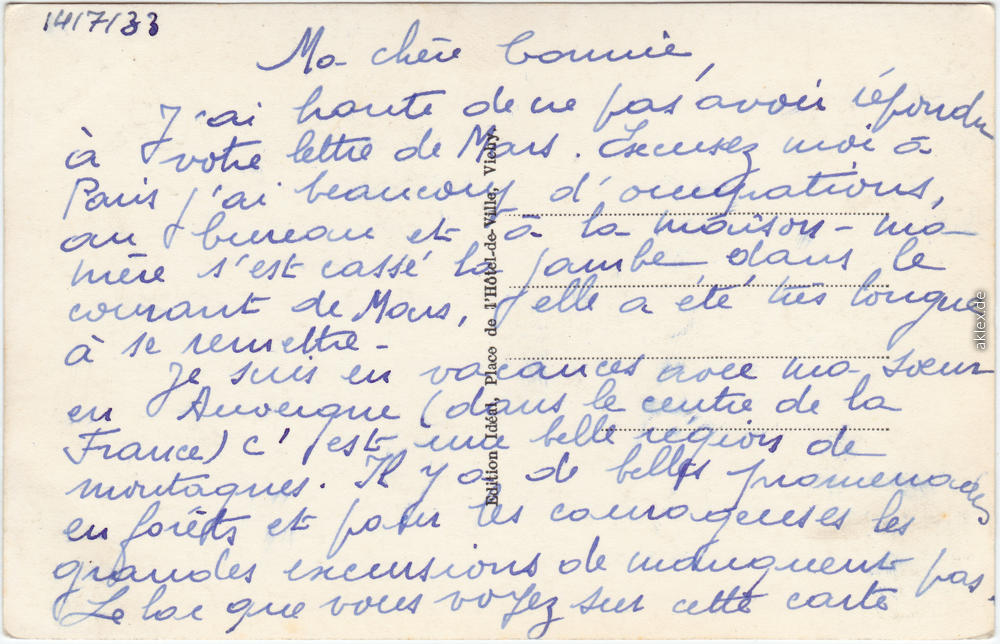 14/7/33
Ma chère Connie,
J'ai honte de ne pas avoir répondu
à votre lettre de Mars. Excusez moi à
Paris j'ai beaucoup d'occupations,
au bureau et à la maison - ma
mère s'est cassé la jambe dans le
courant de Mars, elle a été très longue
à se remettre -
Je suis en vacances avec ma soeur
en Auvergne (dans le centre de la
France) c'est une belle région de
montagnes. Il y a de belles promenades
en forêts et pour les courageuses les
grandes excursions de manquent pas.
Le lac que vous voyez sur cette carte
Edition Idéal, Place de l'Hôtel-de-Ville, Vichy
aklex.de